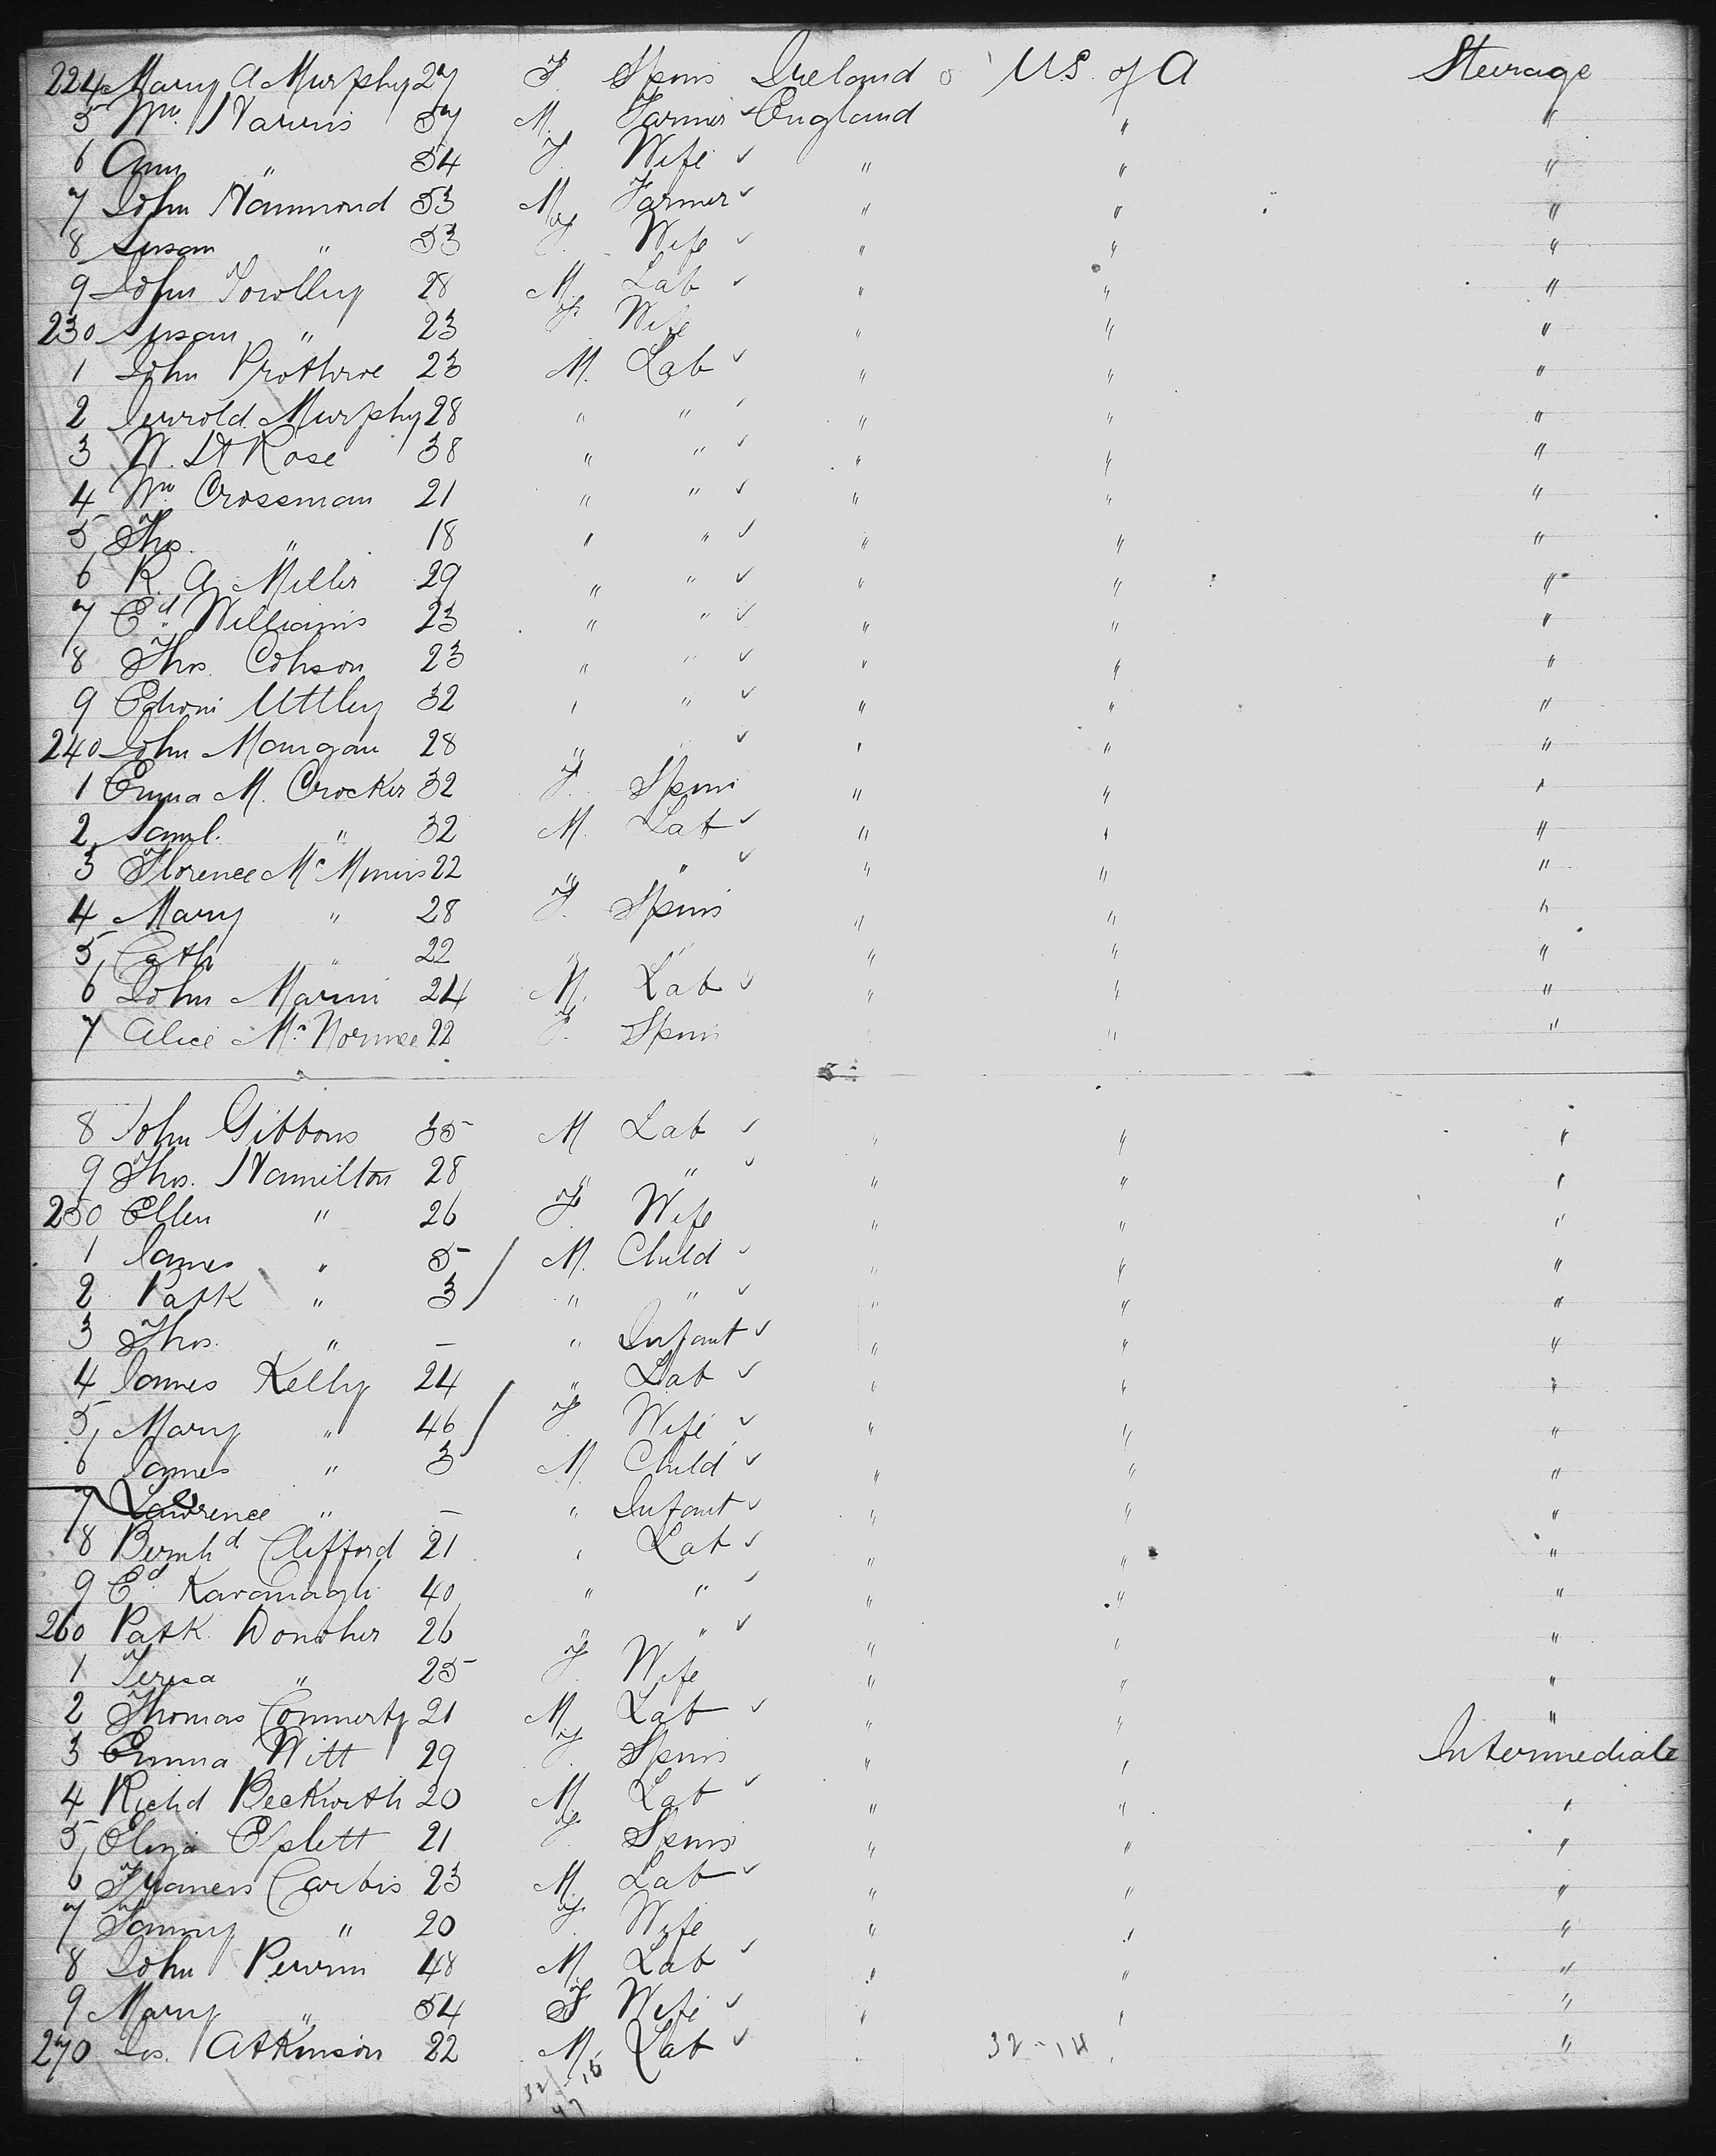 224 Mary A Murphy 27 F Spins Ireland US of A Steerage
5 Wm Harris 57 M. Farmer England " "
6 Ann " 54 F Wife " " "
7 John Hammond 53 M Farmer " " "
8 Susan " 53 F. Wife " " "
9 John 28 M. Lab " " "
230 Susan " 23 F Wife " " "
1 John Prothroe 23 M. Lab " " "
2 Murphy 28 " " " " "
3 W. Rose 38 " " " " "
4 Wm Crossman 21 " " " " "
5 Thos. " 18 " " " " "
6 R. A. Miller 29 " " " " "
7 Ed Williams 23 " " " " "
8 Thos. Cohson 23 " " " " "
9 Edwin Uttley 32 " " " " "
240 John Mangan 28 " " " " "
1 Emma M. Crocker 32 F. Spins " " "
2 Saml. " 32 M. Lab " " "
3 Florence Mc 22 " " " " "
4 Mary " 28 F. Spins " " "
5 Cath " 22 " " " " "
6 John 24 M. Lab " " "
7 Alice 22 F. Spins " " "
8 John Gibbons 35 M Lab " " "
9 Thos. Hamilton 28 " " " " "
250 Ellen " 26 F. Wife " " "
1 James " 5 M. Child " " "
2 Patk " 3 " " " " "
3 Thos. " — " Infant " " "
4 James Kelly 24 " Lab " " "
5 Mary " 46 F. Wife " " "
6 James " 3 M. Child " " "
7 Lawrence " — " Infant " " "
8 Bernhd Clifford 21 " Lab " " "
9 Ed Kavanagh 40 " " " " "
260 Patk Donoher 26 " " " " "
1 Teresa " 25 F. Wife " " "
2 Thomas Commerty 21 M Lab " " "
3 Emma Witt 29 F. Spins " " Intermediate
4 Richd Beckwith 20 M. Lab " " "
5 Eliza Eplett 21 F. Spins " " "
6 Carbis 23 M. Lab " " "
7 " 20 F. Wife " " "
8 John Perrin 48 M Lab " " "
9 Mary " 54 F Wife " " "
270 Jos. Atkinson 22 M. Lab " 32-14 " "